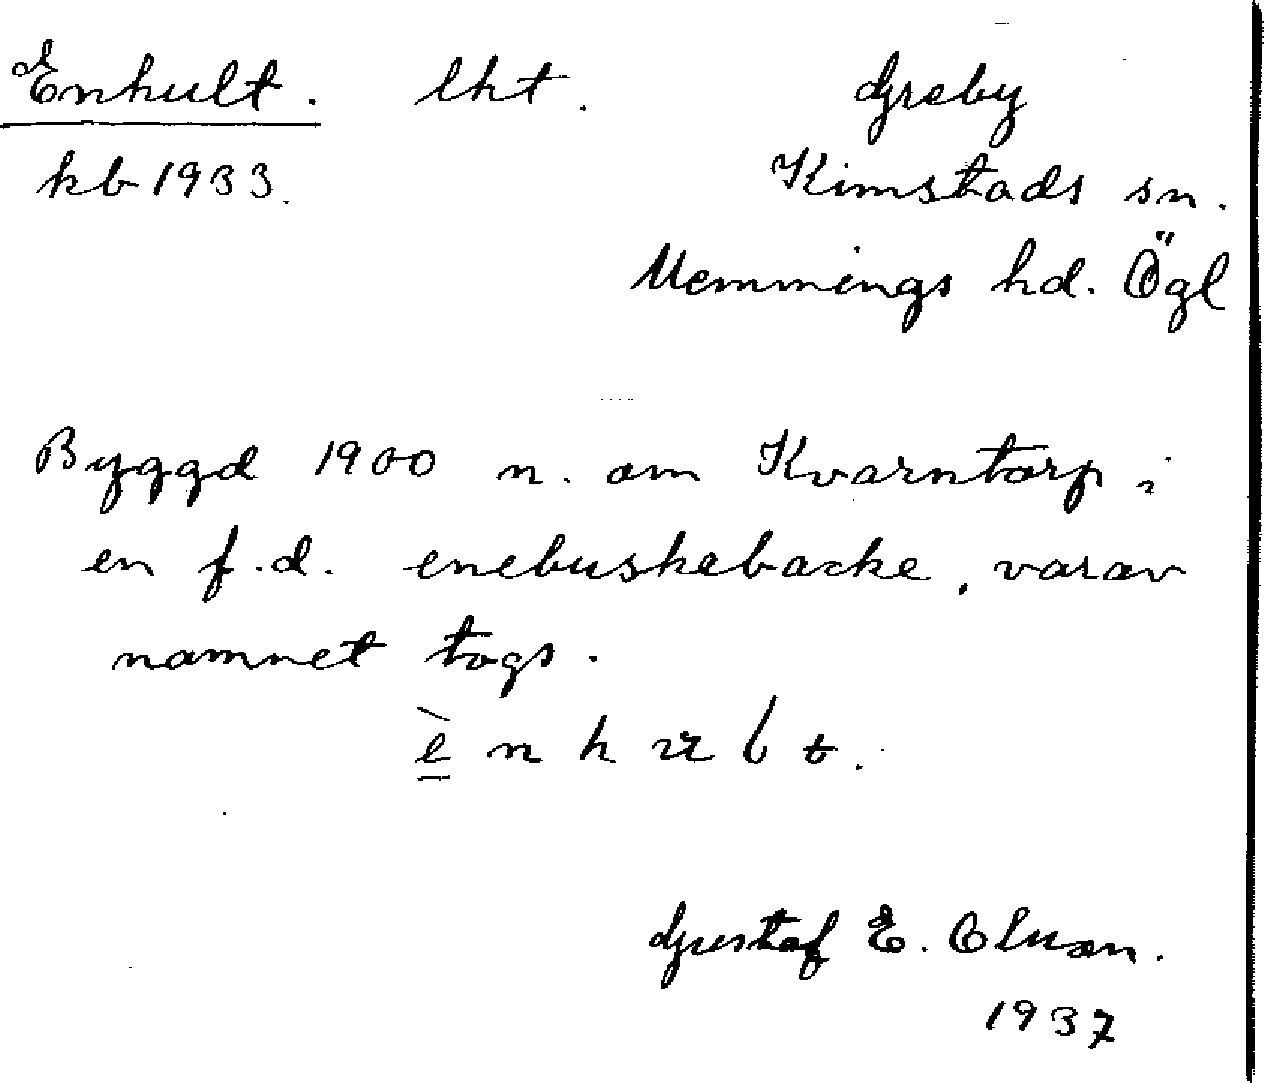 Enhult. lht. Greby
kb 1933. Kimstads sn.
Memmings hd. Ögl
Byggd 1900 n. om Kvarntorp i
en f.d. enebuskebacke, varav
namnet togs.
è n h u l t.
Gustaf E. Olsson.
1937